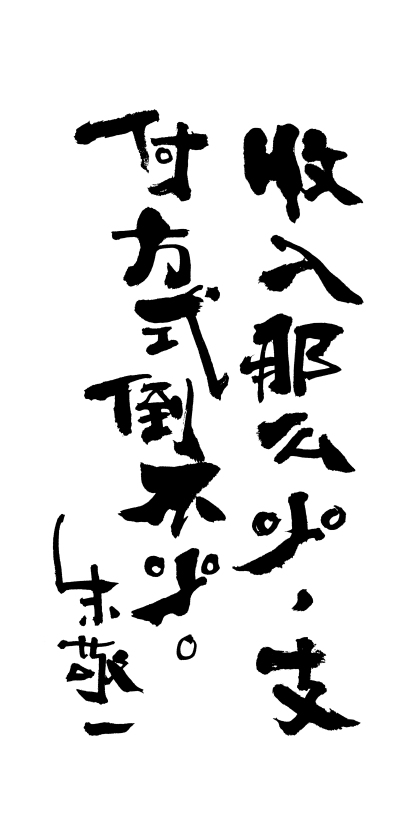 收入那么少，支
付方式倒不少。
朱敬一